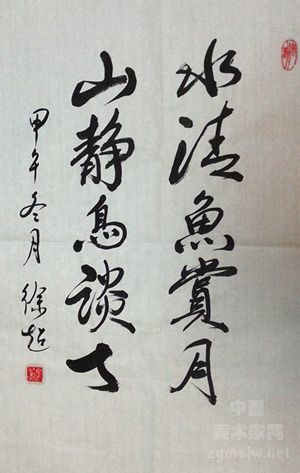 水清魚賞月
山静鳥談天
甲午冬月 徐超
中国
美术家网
zgmsjw.net